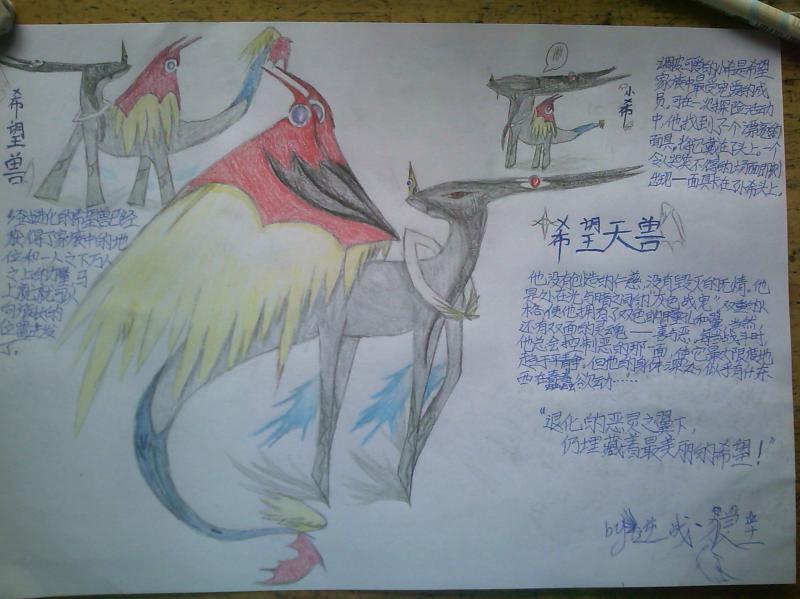 希望兽
经进化的希望兽已经
获得了家族中的地
位和一人之下万人
之上的
上
向族长的
位置出发
了。
小希
调皮可爱的小希是希望
家族中最受宠爱的成
员,可在一次探险活动
中,他找到了个漂亮的
面具,将它戴在了头上。一个
令人哭笑不得的场面即刻
出现—面具卡在了小希头上。
希望天兽
他没有创造的仁慈,没有毁灭的无情,他
是处在光与暗之间的“灰色战士”双重的人
格,使他拥有了双色的瞳孔和翼,当然
还有双面的灵魂——善与恶,每当战斗时,
他总会抑制恶的那一面,使它最大限度地
趋于平静,但他的身体深处,似乎有什东
西在蠢蠢欲动……
“退化的恶灵之翼下,
仍埋藏着最美丽的希望!”
by 逆战·狼